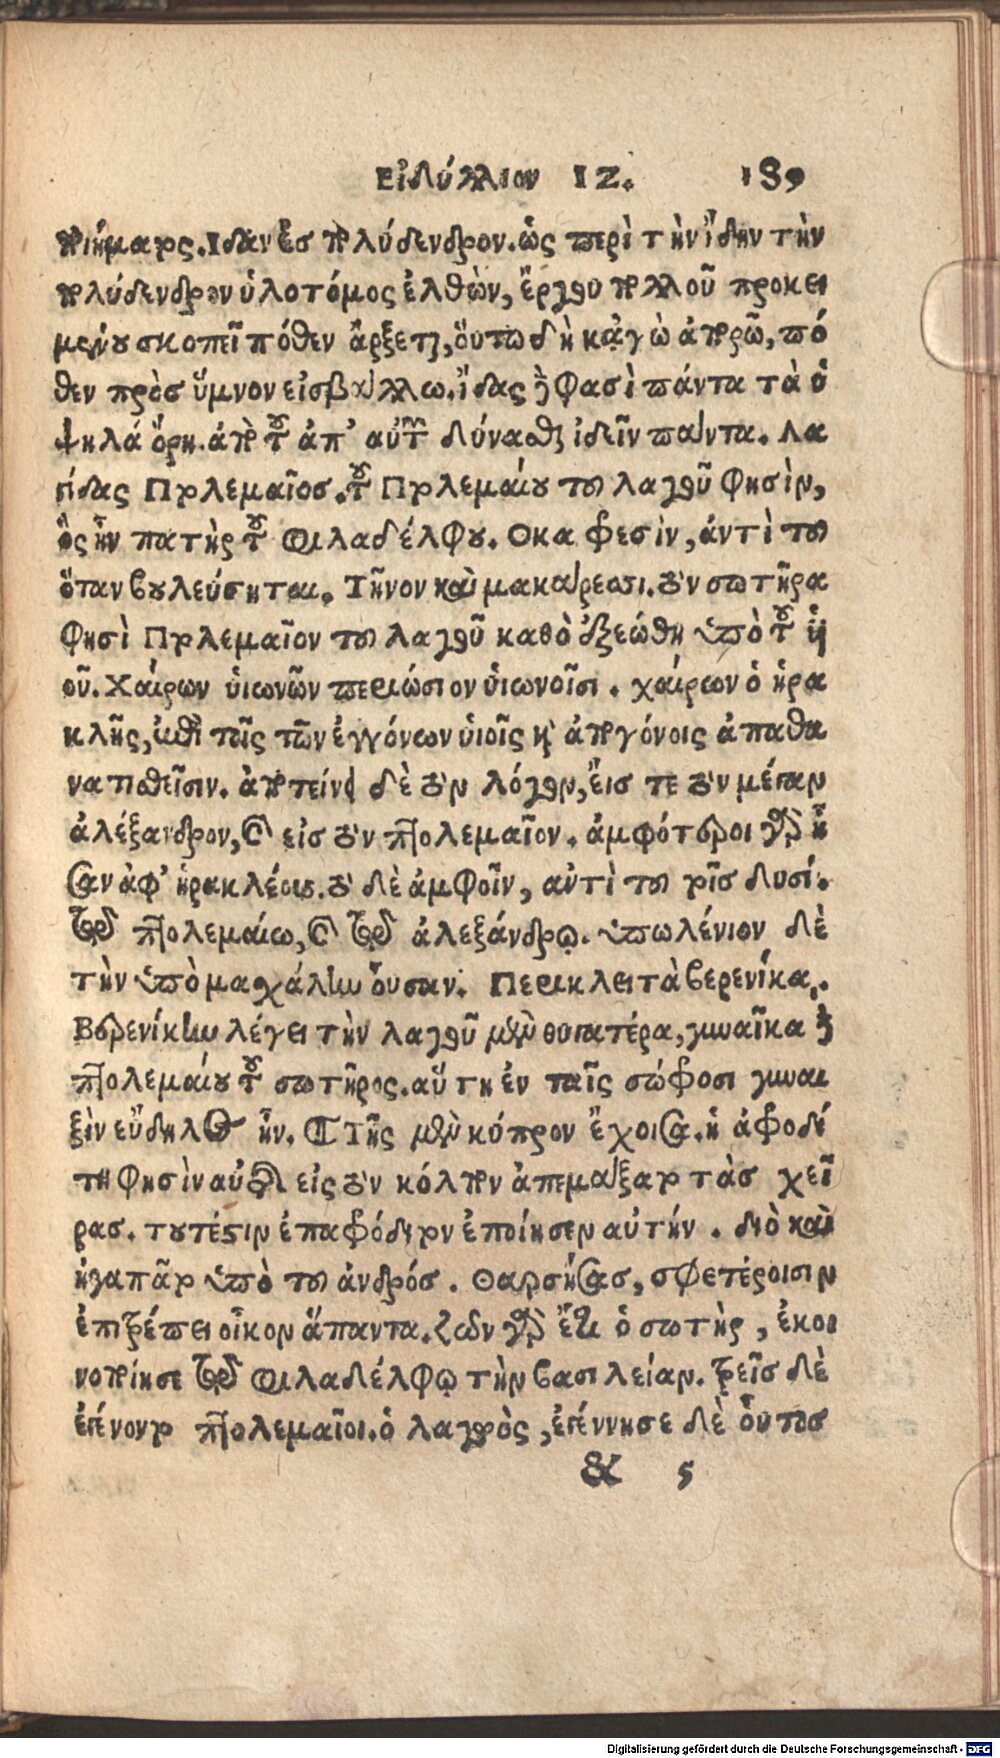 Εἰδύλλιον 17. 189
ποιήμασι. Ἴδαν ἐσ πολύδενδρον. ὡς περὶ τὴν ἴδην τὴν
πολύδενδρον ὑλοτόμος ἐλθὼν, ἔργου πολλοῦ προκει
μένου σκοπεῖ πόθεν ἄρξεται, οὕτω δὴ κἀγὼ ἀπορῶ, πό
θεν πρὸσ ὕμνον εἰσβάλλω. ἴδας δέ φασὶ πάντα τὰ ὑ
ψηλά ὄρη. ἀπὸ τοῦ ἀπ' αὐτῶν δύνασθαι ἰδεῖν πάντα. Λα
γίδας Πτολεμαῖοσ. τοῦ Πτολεμαίου του λαγοῦ φησὶν,
ὃς ἦν πατὴρ τοῦ φιλαδέλφου. Ὅκα φρεσὶν, ἀντὶ του
ὅταν βουλεύσηται. Τῆνον καὶ μακάρεσσι. τὸν σωτῆρα
φησὶ Πτολεμαῖον του λαγοῦ καθὸ ἐξεώθη ὑπὸ τοῦ ὑι
οῦ. Χαίρων ὑιωνῶν περιώσιον ὑιωνοῖσι. χαίρων ὁ ἡρα
κλῆς, ἐπὶ τοῖς τῶν ἐγγόνων ὑιοῖς καὶ ἀπογόνοις ἀπαθα
νατισθεῖσιν. ἀποτείνει δὲ τὸν λόγον, ἔις τε τὸν μέγαν
ἀλέξανδρον, καὶ εἰσ τὸν πτολεμαῖον. ἀμφότεροι γὰρ ἦ
σαν ἀφ' ἡρακλέους. τὸ δὲ ἀμφοῖν, αὐτὶ του τοῖσ δυσί.
τῷ πτολεμαίω, καὶ τῷ ἀλεξάνδρῳ. ὑπωλένιον δὲ
τὴν ὑπὸ μαχάλην οὖσαν. Περικλειτὰ βερενίκα.
Βερενίκην λέγει τὴν λαγοῦ μὲν θυγατέρα, γυναῖκα δὲ
πτολεμαίου τοῦ σωτῆρος. αὕτη ἐν ταῖς σώφροσι γυναι
ξὶν εὔδηλος ἦν. Τῆς μὲν κύπρον ἔχοισα. ἡ ἀφροδί
τη φησὶν αὐτῆς εἰς τὸν κόλπον ἀπεμάξατο τὰσ χεῖ
ρασ. τουτέστιν ἐπαφρόδιτον ἐποίησεν αὐτήν. διὸ καὶ
ἠγαπᾶτο ὑπὸ του ἀνδρόσ. Θαρσήσας, σφετέροισιν
ἐπιτρέπει οἶκον ἅπαντα. ζῶν γὰρ ἔτι ὁ σωτὴρ, ἐκοι
νοποίησε τῷ φιλαδέλφῳ τὴν βασιλείαν. τρεῖσ δὲ
ἐγένοντο πτολεμαῖοι. ὁ λαγὸς, ἐγέννησε δὲ οὗτοσ
& 5
Digitalisierung gefördert durch die Deutsche Forschungsgemeinschaft - DFG